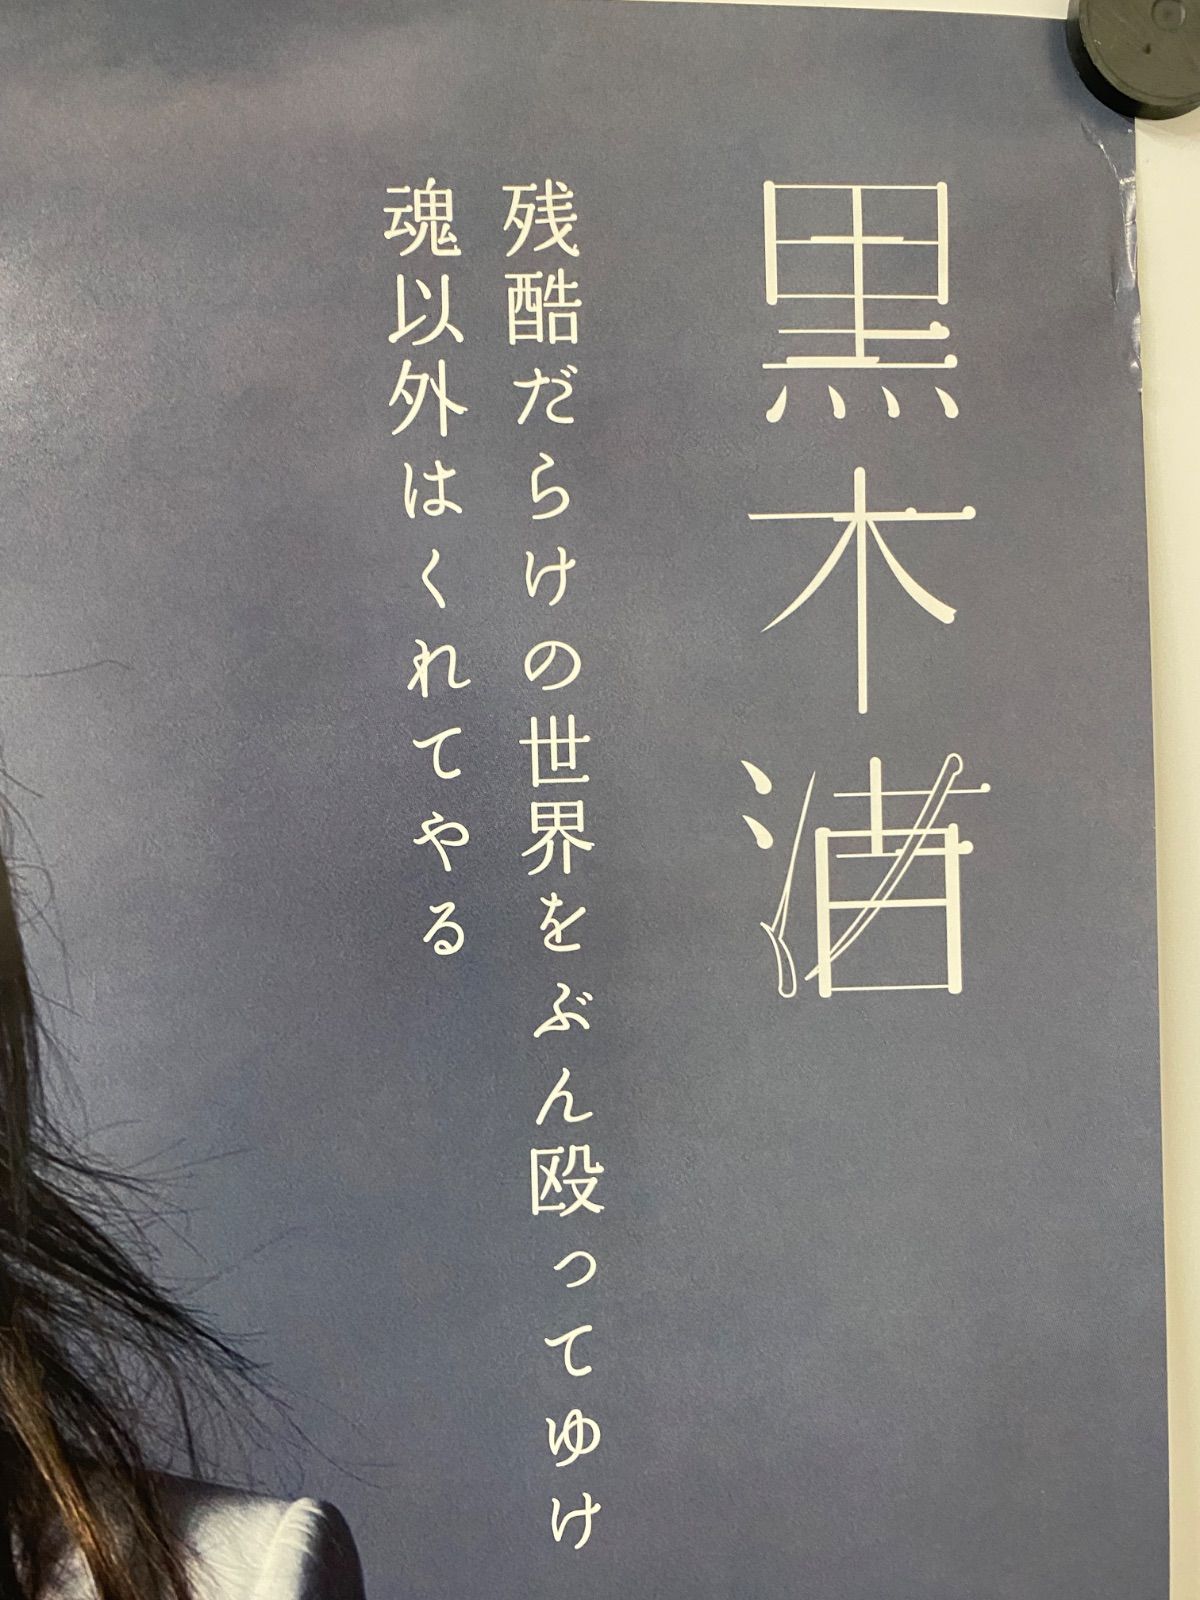 黒木渚
残酷だらけの世界をぶん殴ってゆけ
魂以外はくれてやる